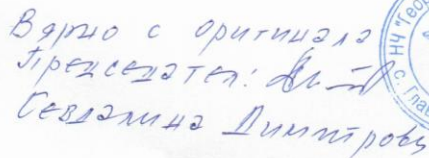 Вярно с оригинала
Председател:
Севдалина Димитрова
НЧ "Геор
с. Глав